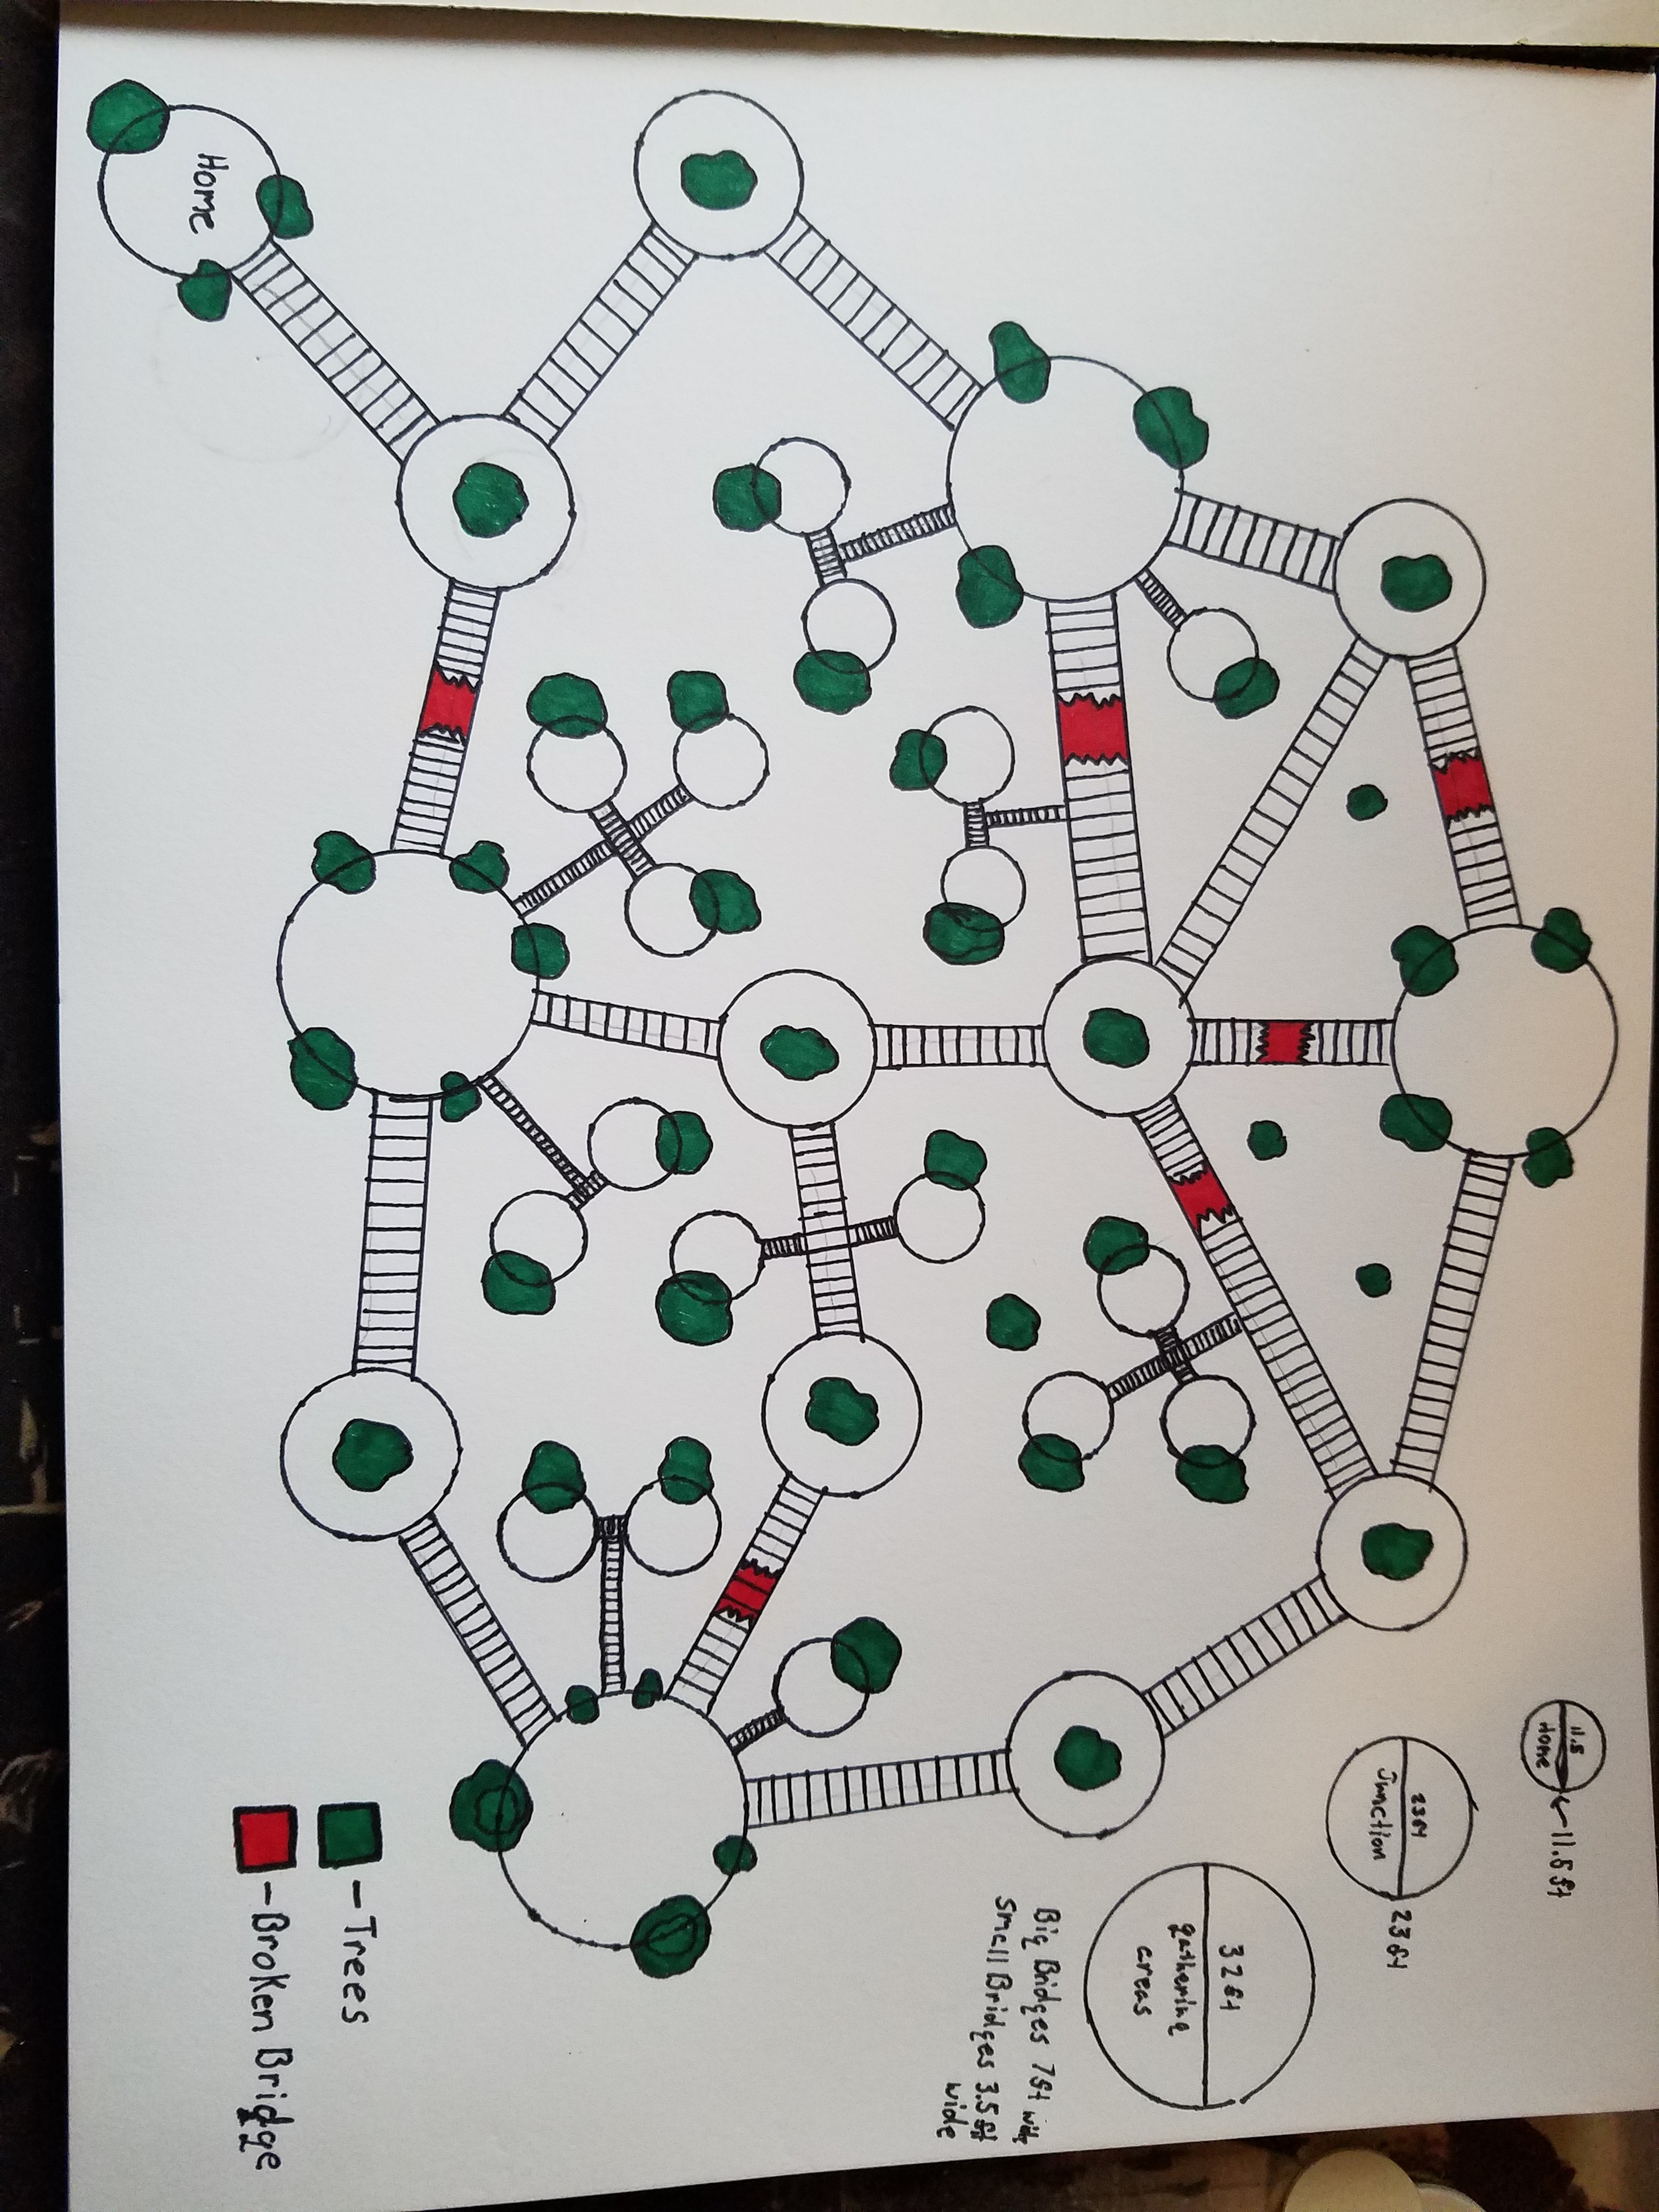 11.5
Home
11.5ft
23ft
Junction
23ft
32ft
gathering
areas
Big Bridges 7ft wide
Small Bridges 3.5ft
wide
- Trees
- Broken Bridge
Home